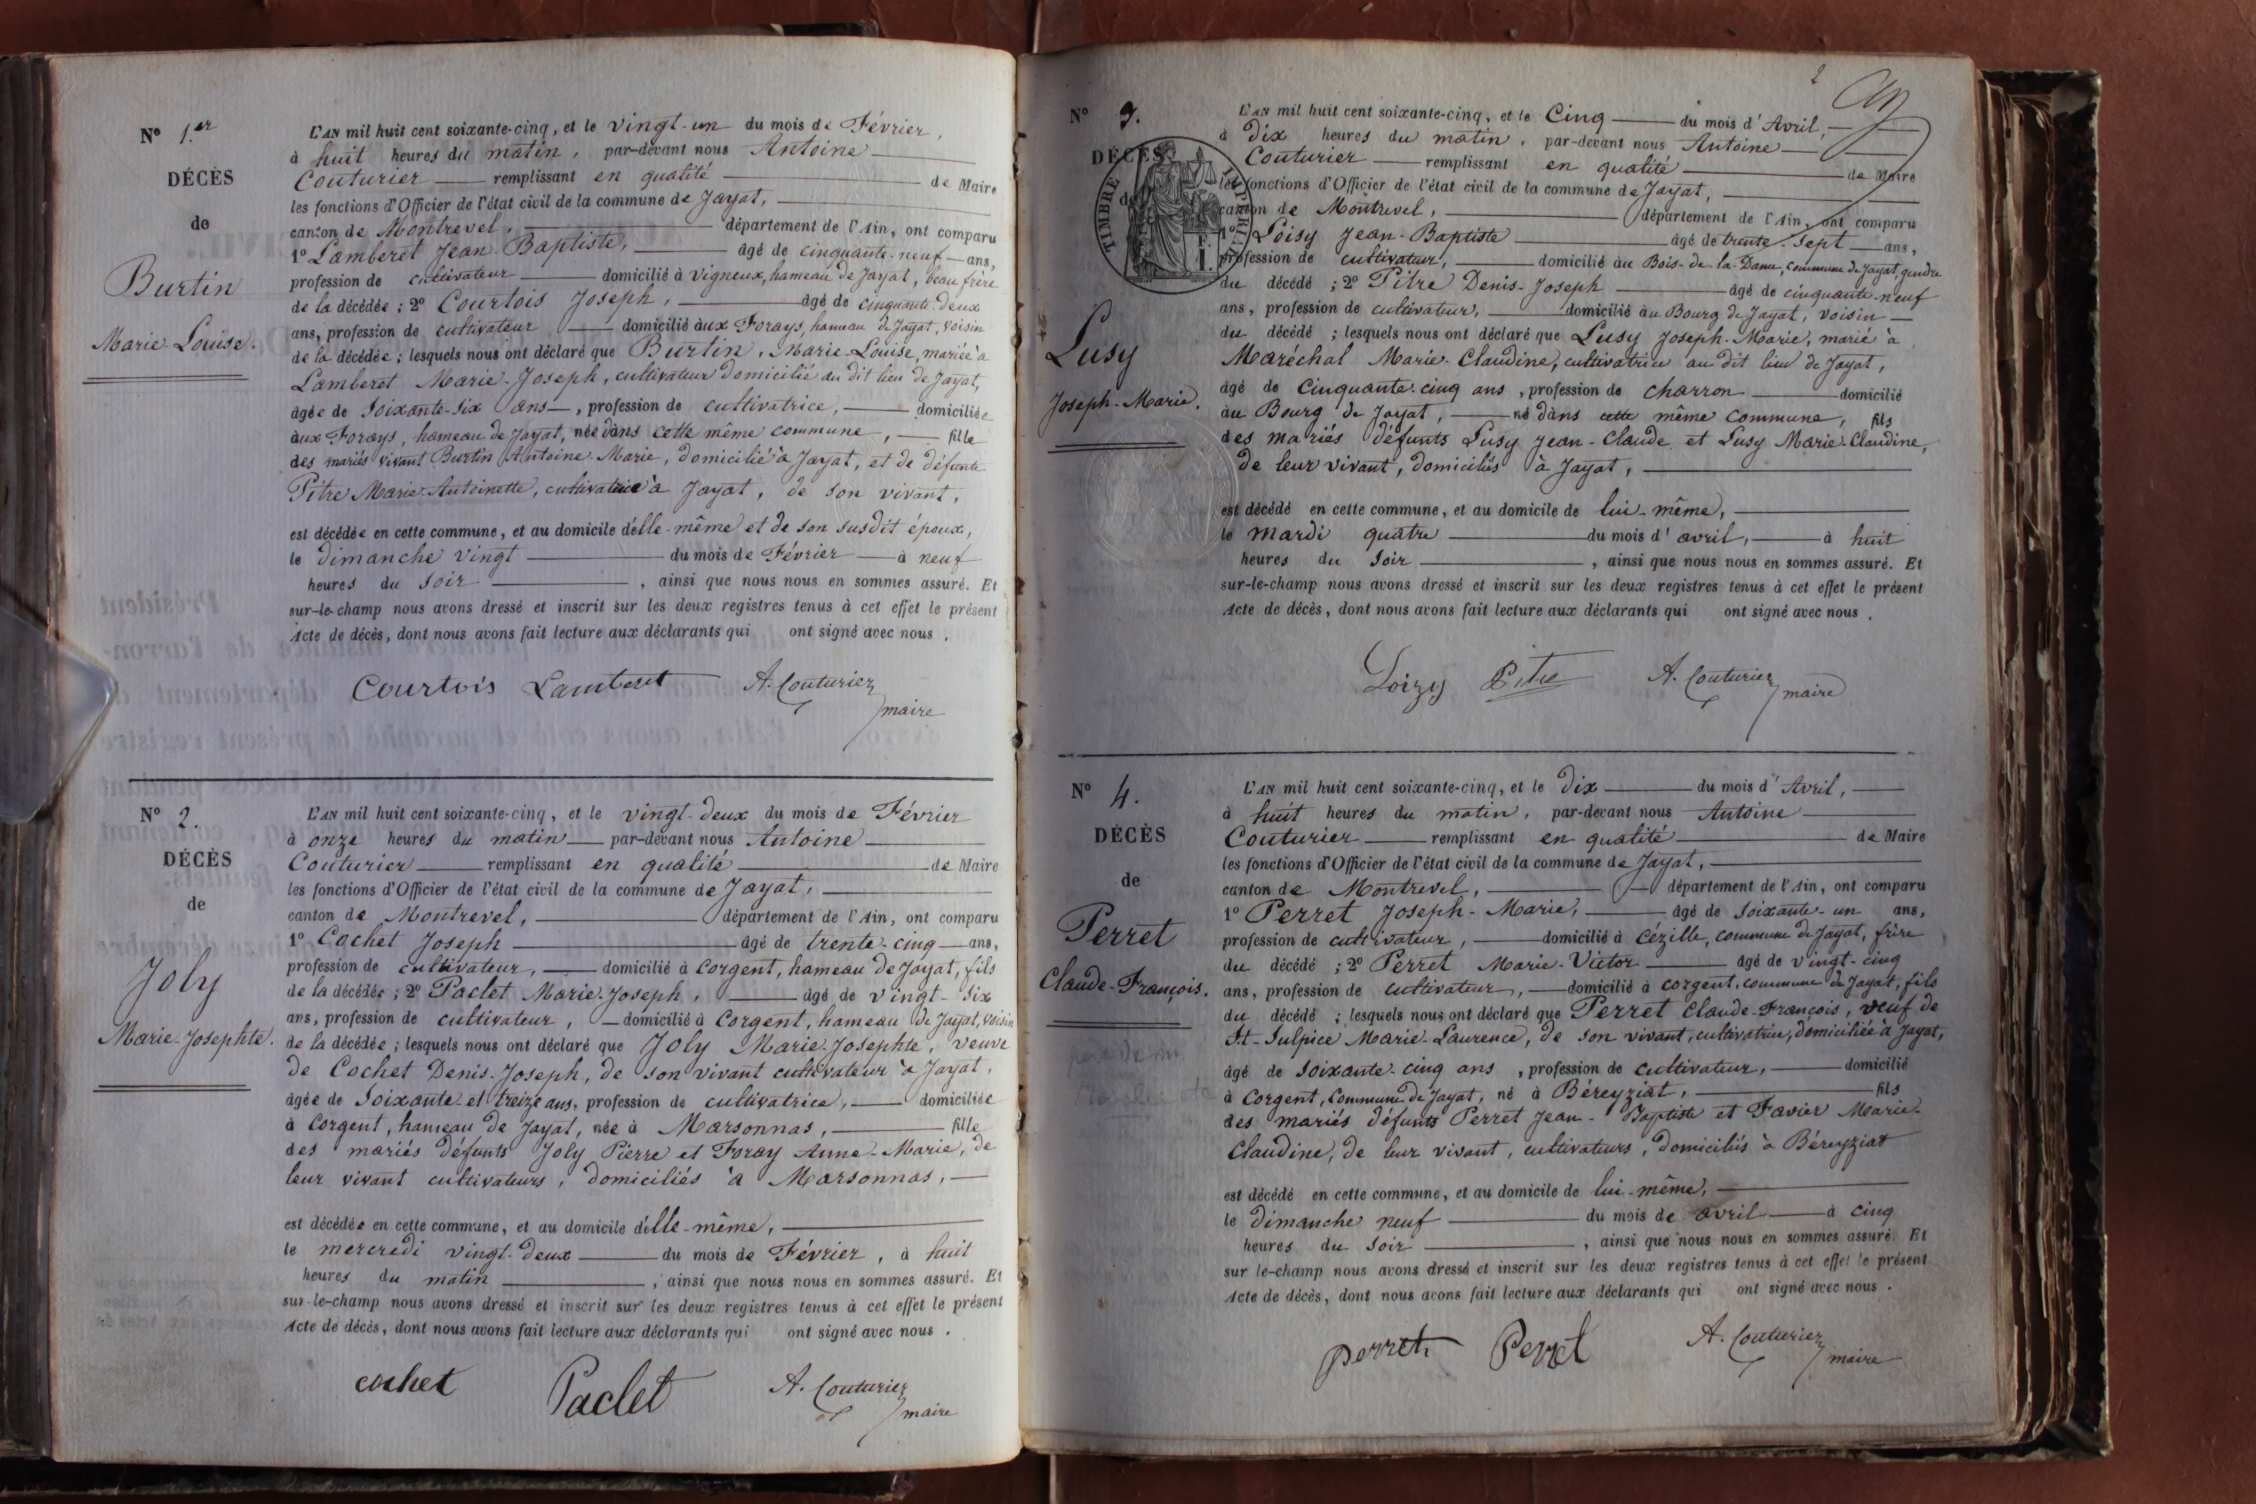 N° 1.er
DÉCÈS
de
Burtin
Marie Louise.
L'AN mil huit cent soixante-cinq, et le vingt-un du mois de Février,
à huit heures du matin, par-devant nous Antoine
Couturier remplissant en qualité de Maire
les fonctions d'Officier de l'état civil de la commune de Jayat,
canton de Montrevel, département de l'Ain, ont comparu
1° Lamberet Jean Baptiste, âgé de cinquante-neuf ans,
profession de cultivateur domicilié à Vigneux, hameau de Jayat, beau frère
de la décédée ; 2° Courtois Joseph, âgé de cinquante-deux
ans, profession de cultivateur domicilié aux Forays, hameau de Jayat, voisin
de la décédée ; lesquels nous ont déclaré que Burtin, Marie-Louise, mariée à
Lamberet Marie-Joseph, cultivateur domicilié au dit lieu de Jayat,
âgée de soixante-six ans, profession de cultivatrice, domiciliée
aux Forays, hameau de Jayat, née dans cette même commune, fille
des mariés vivant Burtin Antoine-Marie, domicilié à Jayat, et de défunte
Pitre Marie-Antoinette, cultivatrice à Jayat, de son vivant,
est décédée en cette commune, et au domicile d'elle-même et de son susdit époux,
le dimanche vingt du mois de Février à neuf
heures du soir, ainsi que nous nous en sommes assuré. Et
sur-le-champ nous avons dressé et inscrit sur les deux registres tenus à cet effet le présent
Acte de décès, dont nous avons fait lecture aux déclarants qui ont signé avec nous.
Courtois Lamberet A. Couturier
maire
N° 2.
DÉCÈS
de
Joly
Marie-Josephte.
L'AN mil huit cent soixante-cinq, et le vingt-deux du mois de Février
à onze heures du matin par-devant nous Antoine
Couturier remplissant en qualité de Maire
les fonctions d'Officier de l'état civil de la commune de Jayat,
canton de Montrevel, département de l'Ain, ont comparu
1° Cochet Joseph âgé de trente-cinq ans,
profession de cultivateur, domicilié à Corgent, hameau de Jayat, fils
de la décédée ; 2° Paclet Marie-Joseph, âgé de vingt-six
ans, profession de cultivateur, domicilié à Corgent, hameau de Jayat, voisin
de la décédée ; lesquels nous ont déclaré que Joly Marie-Josephte, veuve
de Cochet Denis-Joseph, de son vivant cultivateur à Jayat,
âgée de soixante et treize ans, profession de cultivatrice, domiciliée
à Corgent, hameau de Jayat, née à Marsonnas, fille
des mariés défunts Joly Pierre et Foray Anne-Marie, de
leur vivant cultivateurs, domiciliés à Marsonnas,
est décédée en cette commune, et au domicile d'elle-même,
le mercredi vingt-deux du mois de Février, à huit
heures du matin, ainsi que nous nous en sommes assuré. Et
sur-le-champ nous avons dressé et inscrit sur les deux registres tenus à cet effet le présent
Acte de décès, dont nous avons fait lecture aux déclarants qui ont signé avec nous.
cochet Paclet A. Couturier
maire
2
N° 3.
DÉCÈS
de
TIMBRE IMPÉRIAL
1 F.
Lusy
Joseph-Marie.
L'AN mil huit cent soixante-cinq, et le Cinq du mois d'Avril,
à dix heures du matin, par-devant nous Antoine
Couturier remplissant en qualité de Maire
les fonctions d'Officier de l'état civil de la commune de Jayat,
canton de Montrevel, département de l'Ain, ont comparu
1° Loisy Jean-Baptiste âgé de trente-sept ans,
profession de cultivateur, domicilié au Bois-de-la-Dame, commune de Jayat, gendre
du décédé ; 2° Pitre Denis-Joseph âgé de cinquante-neuf
ans, profession de cultivateur, domicilié au Bourg de Jayat, voisin
du décédé ; lesquels nous ont déclaré que Lusy Joseph-Marie, marié à
Maréchal Marie-Claudine, cultivatrice au dit lieu de Jayat,
âgé de Cinquante-cinq ans, profession de charron domicilié
au Bourg de Jayat, né dans cette même commune, fils
des mariés défunts Lusy Jean-Claude et Lusy Marie-Claudine,
de leur vivant, domiciliés à Jayat,
est décédé en cette commune, et au domicile de lui-même,
le mardi quatre du mois d'avril, à huit
heures du soir, ainsi que nous nous en sommes assuré. Et
sur-le-champ nous avons dressé et inscrit sur les deux registres tenus à cet effet le présent
Acte de décès, dont nous avons fait lecture aux déclarants qui ont signé avec nous.
Loizy Pitre A. Couturier
maire
N° 4.
DÉCÈS
de
Perret
Claude-François.
L'AN mil huit cent soixante-cinq, et le dix du mois d'Avril,
à huit heures du matin, par-devant nous Antoine
Couturier remplissant en qualité de Maire
les fonctions d'Officier de l'état civil de la commune de Jayat,
canton de Montrevel, département de l'Ain, ont comparu
1° Perret Joseph-Marie, âgé de soixante-un ans,
profession de cultivateur, domicilié à Cézille, commune de Jayat, frère
du décédé ; 2° Perret Marie-Victor âgé de vingt-cinq
ans, profession de cultivateur, domicilié à Corgent, commune de Jayat, fils
du décédé ; lesquels nous ont déclaré que Perret Claude-François, veuf de
St-Sulpice Marie-Laurence, de son vivant, cultivatrice, domiciliée à Jayat,
âgé de soixante-cinq ans, profession de cultivateur, domicilié
à Corgent, Commune de Jayat, né à Béreyziat, fils
des mariés défunts Perret Jean-Baptiste et Favier Marie-
Claudine, de leur vivant, cultivateurs, domiciliés à Béreyziat
est décédé en cette commune, et au domicile de lui-même,
le dimanche neuf du mois de avril à cinq
heures du soir, ainsi que nous nous en sommes assuré. Et
sur le-champ nous avons dressé et inscrit sur les deux registres tenus à cet effet le présent
Acte de décès, dont nous avons fait lecture aux déclarants qui ont signé avec nous.
perret Perret A. Couturier
maire